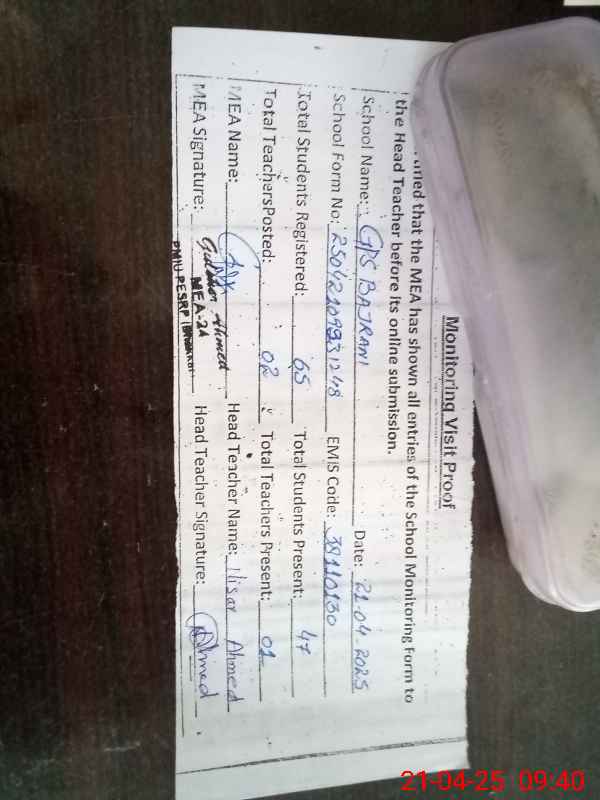 Monitoring Visit Proof
that the MEA has shown all entries of the School Monitoring Form to
the Head Teacher before its online submission.
School Name: GPS BAJRANI Date: 21-04-2025
School Form No: EMIS Code: 38110130
Total Students Registered: 65 Total Students Present: 47
Total TeachersPosted: 02 Total Teachers Present: 01
MEA Name: Head Teacher Name: Nisar Ahmed
MEA Signature: Head Teacher Signature: Ahmed
Ahmed
MEA-24
PMIU-PESRP
21-04-25 09:40